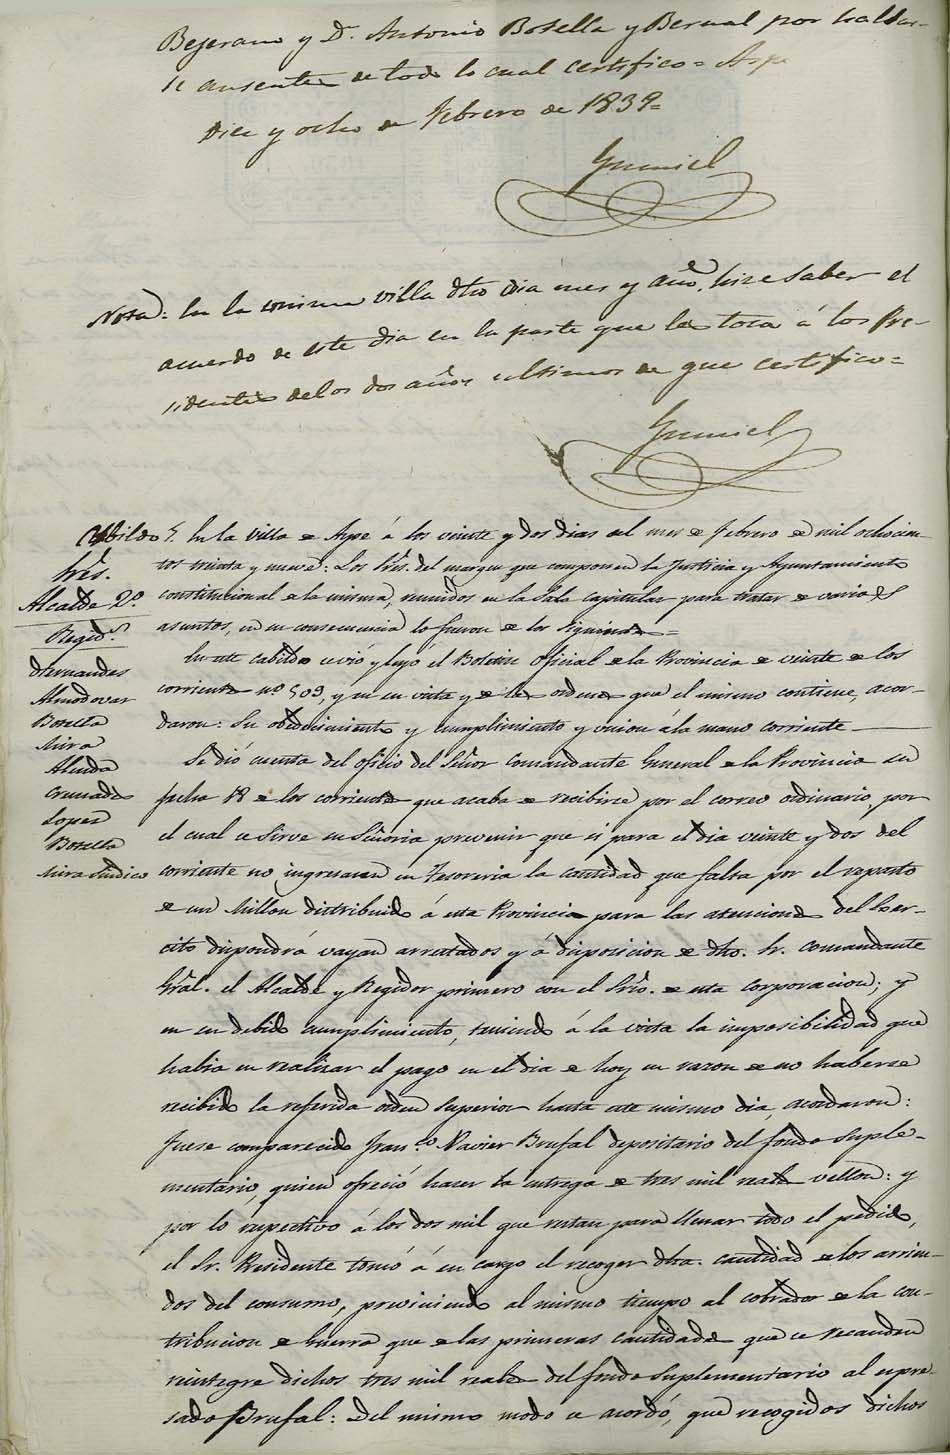 Bejerano y Dn. Antonio Botella y Bernal por hallar-
se ausente de todo lo cual certifico = Aspe
diez y ocho de Febrero de 1839=
Gumiel
Nota: En la misma villa dho dia mes y año, hize saber el
acuerdo de este dia en la parte que les toca á los Pre-
sidentes de los dos años ultimos de que certifico=
Gumiel
Cabildo
Sres.
Alcalde 2º.
Regids.
Hernandes
Almodovar
Botella
Mira
Alenda
Cremades
Lopez
Botella
Mira Sindico
En la Villa de Aspe á los veinte y dos dias del mes de Febrero de mil ochocien-
tos treinta y nueve: Los Sres. del margen que componen la Justicia y Ayuntamiento
constitucional de la misma, reunidos en la Sala capitular para tratar de varios
asuntos, en su consecuencia lo fueron de los siguientes=
En este cabildo se vió y leyó el Boletin oficial de la Provincia de veinte de los
corrientes nº 509, y en su vista y de las ordenes que el mismo contiene, acor-
daron: Su obedecimiento y cumplimiento y union á la mano corriente
Se dió cuenta del oficio del Señor Comandante General de la Provincia su
fecha 18 de los corrientes que acaba de recibirse por el correo ordinario, por
el cual se sirve su Señoria prevenir que si para el dia veinte y dos del
corriente no ingresaren en Tesoreria la cantidad que falta por el reparto
de un Millon distribuido á esta Provincia para las atenciones del Eger-
cito dispondrá vayan arrestados y á disposicion de dho. Sr. Comandante
Gral. el Alcalde y Regidor primero con el Srio. de esta corporacion; y
en su debido cumplimiento, teniendo á la vista la imposibilidad que
habia en realizar el pago en el dia de hoy en razon de no haberse
recibido la referida orden superior hasta este mismo dia, acordaron:
fuese comparecido Franco. Xavier Brufal depositario del fondo suple-
mentario, quien ofreció hacer la entrega de tres mil reales vellon: y
por lo respectivo á los dos mil que restan para llenar todo el pedido,
el Sr. Presidente tomó á su cargo el recoger dha. cantidad de los arrien-
dos del consumo, previniendo al mismo tiempo al cobrador de la con-
tribucion de Guerra que de las primeras cantidades que se recauden
reintegre dichos tres mil reales del fondo suplementario al espre-
sado Brufal: Del mismo modo se acordó, que recogidos dichos